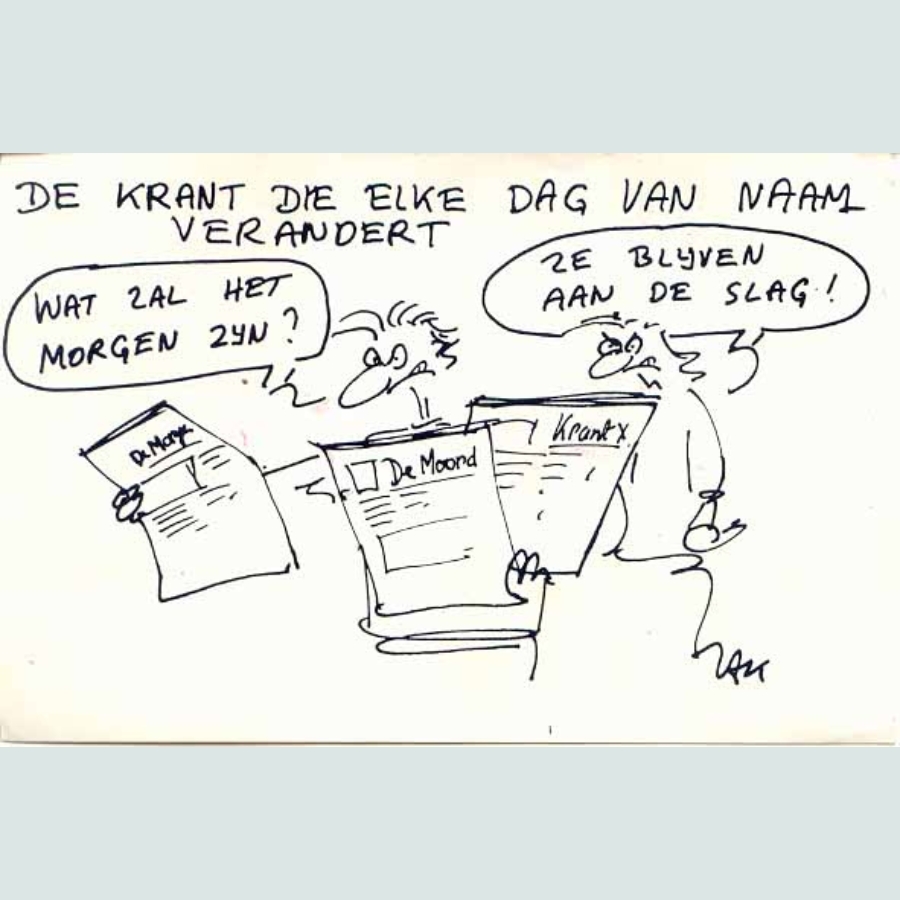 DE KRANT DIE ELKE DAG VAN NAAM
VERANDERT
WAT ZAL HET
MORGEN ZYN?
ZE BLYVEN
AAN DE SLAG!
De Moord
Krant x